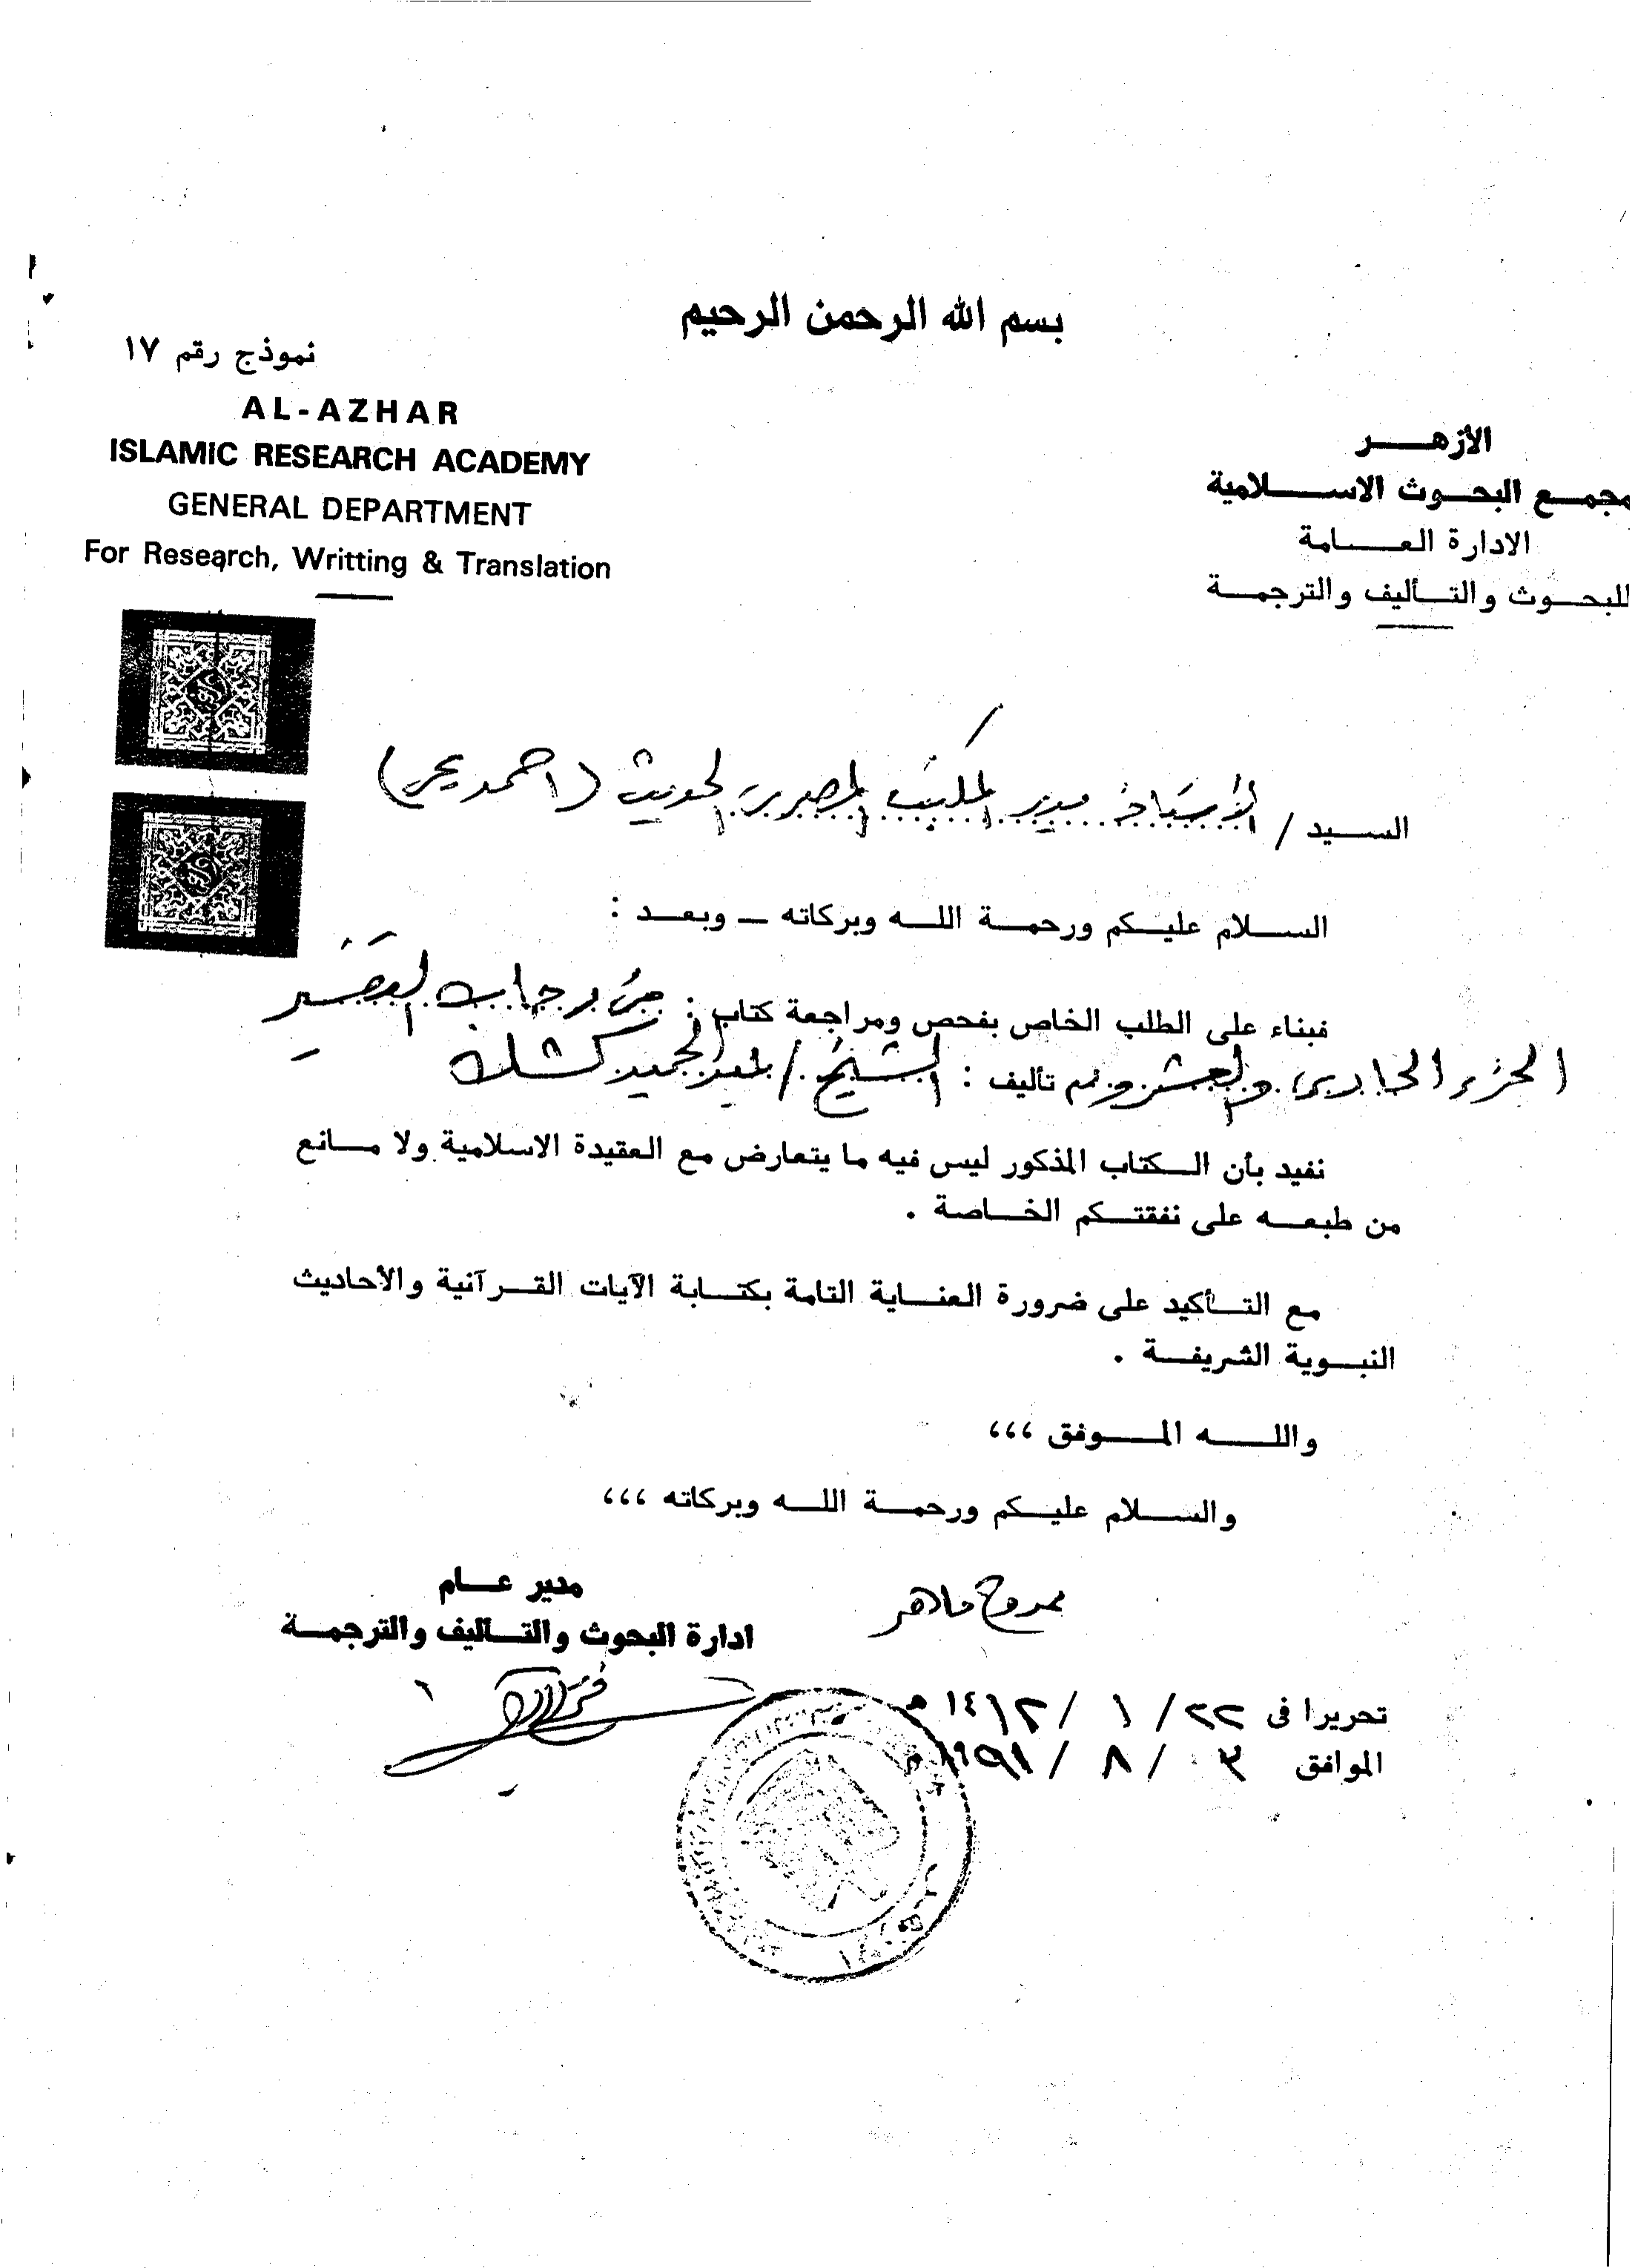 بسم الله الرحمن الرحيم
نموذج رقم ١٧
AL-AZHAR
ISLAMIC RESEARCH ACADEMY
GENERAL DEPARTMENT
For Research, Writting & Translation
الأزهــــر
مجمـع البحـوث الاســلامية
الادارة العـــامة
للبحـوث والتـأليف والترجمـة
السـيد / الأستاذ مدير المكتب المصرى الحديث (احمد يحى)
السـلام عليـكم ورحمـة اللـه وبركاته ــ وبعـد :
فبناء على الطلب الخاص بفحص ومراجعة كتاب : من رحاب التفسير
الجزء الحادى والعشرون تأليف : الشيخ / عبد الحميد كشك
نفيد بأن الـكتاب المذكور ليس فيه ما يتعارض مع العقيدة الاسلامية ولا مـانع
من طبعـه على نفقتـكم الخـاصة .
مع التـأكيد على ضرورة العنـاية التامة بكتـابة الآيات القـرآنية والأحاديث
النبـوية الشريفـة .
واللـــه المـــوفق ،،،
والسـلام عليـكم ورحمـة اللـه وبركاته ،،،
مدير عـــام
ادارة البحوث والتـاليف والترجمـة
ممدوح ماهر
تحريرا فى ٢٢ / ١ / ١٤١٢ هـ
الموافق ٣ / ٨ / ١٩٩١ م